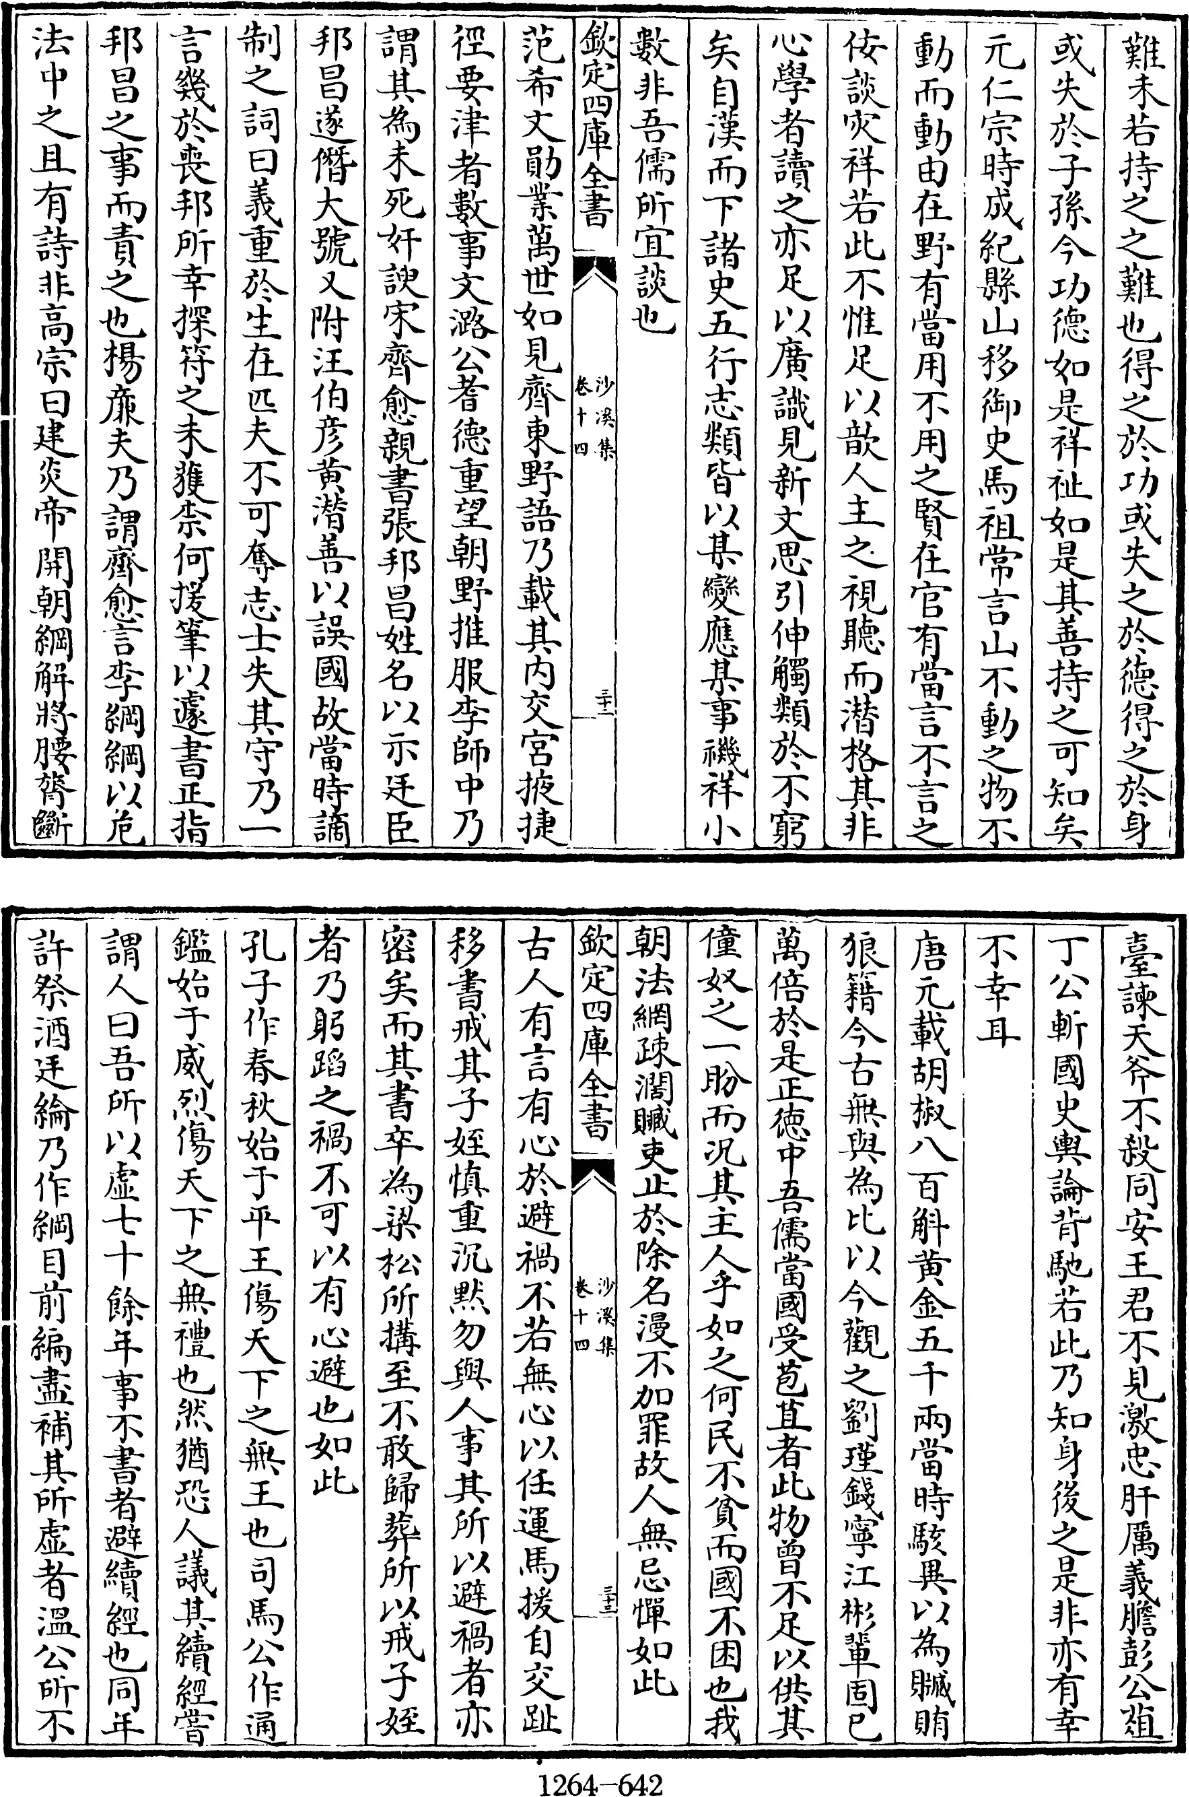 難未若持之之難也得之於功或失之於德得之於身
或失於子孫今功德如是祥祉如是其善持之可知矣
元仁宗時成紀縣山移御史馬祖常言山不動之物不
動而動由在野有當用不用之賢在官有當言不言之
佞談灾祥若此不惟足以歆人主之視聽而潛格其非
心學者讀之亦足以廣識見新文思引伸觸類於不窮
矣自漢而下諸史五行志類皆以某變應某事禨祥小
數非吾儒所宜談也
欽定四庫全書
沙溪集
卷十四
三十二
范希文勛業萬世如見齊東野語乃載其內交宮掖捷
徑要津者數事文潞公耆德重望朝野推服李師中乃
謂其為未死奸諛宋齊愈親書張邦昌姓名以示廷臣
邦昌遂僭大號又附汪伯彦黄潛善以誤國故當時謫
制之詞曰義重於生在匹夫不可奪志士失其守乃一
言幾於喪邦所幸探符之未獲柰何援筆以遽書正指
邦昌之事而責之也楊廉夫乃謂齊愈言李綱綱以危
法中之且有詩非高宗曰建炎帝開朝綱解將腰膂斷
臺諫天爷不殺同安王君不見激忠肝厲義膽彭公葅
丁公斬國史輿論背馳若此乃知身後之是非亦有幸
不幸耳
唐元載胡椒八百斛黄金五千兩當時駭異以為贓賄
狼籍今古無與為比以今觀之劉瑾錢寧江彬輩固已
萬倍於是正德中吾儒當國受苞苴者此物曾不足以供其
僮奴之一盼而况其主人乎如之何民不貧而國不困也我
朝法網疎濶贓吏止於除名漫不加罪故人無忌憚如此
欽定四庫全書
沙溪集
卷十四
三十三
古人有言有心於避禍不若無心以任運馬援自交趾
移書戒其子姪慎重沉默勿與人事其所以避禍者亦
密矣而其書卒為梁松所搆至不敢歸葬所以戒子姪
者乃躬蹈之禍不可以有心避也如此
孔子作春秋始于平王傷天下之無王也司馬公作通
鑑始于威烈傷天下之無禮也然猶恐人議其續經嘗
謂人曰吾所以虛七十餘年事不書者避續經也同年
許祭酒廷綸乃作綱目前編盡補其所虛者溫公所不
1264-642